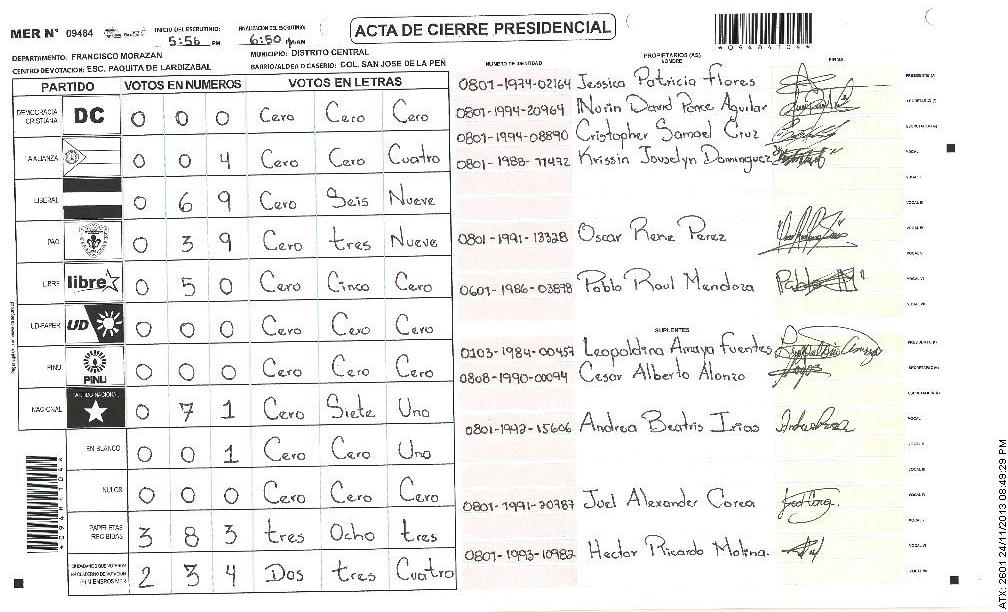 MER N° 09484
INICIO DEL ESCRUTINIO: 5:56 PM
FINALIZACION DEL ESCRUTINIO: 6:50
ACTA DE CIERRE PRESIDENCIAL
DEPARTAMENTO: FRANCISCO MORAZAN
MUNICIPIO: DISTRITO CENTRAL
CENTRO DE VOTACION: ESC. PAQUITA DE LARDIZABAL
BARRIO/ALDEA O CASERIO: COL. SAN JOSE DE LA PEÑ
PARTIDO VOTOS EN NUMEROS VOTOS EN LETRAS
DEMOCRACIA CRISTIANA DC 0 0 0 Cero Cero Cero
ALIANZA 0 0 4 Cero Cero Cuatro
LIBERAL 0 6 9 Cero Seis Nueve
PAC 0 3 9 Cero tres Nueve
LIBRE libre 0 5 0 Cero Cinco Cero
UD-FAPER UD 0 0 0 Cero Cero Cero
PINU PINU 0 0 0 Cero Cero Cero
NACIONAL PARTIDO NACIONAL 0 7 1 Cero Siete Uno
EN BLANCO 0 0 1 Cero Cero Uno
NULOS 0 0 0 Cero Cero Cero
PAPELETAS RECIBIDAS 3 8 3 tres Ocho tres
CIUDADANOS QUE VOTARON 2 3 4 Dos tres Cuatro
NUMERO DE IDENTIDAD
PROPIETARIOS (AS)
NOMBRE
FIRMA
0801-1974-02164 Jessica Patricia Flores
0801-1994-20964 Nurin David Ponce Aguilar
0801-1994-08890 Cristopher Samael Cruz
0801-1988-11472 Krissin Jouselyn Dominguez
0801-1991-13328 Oscar Rene Perez
0601-1986-03878 Pablo Raul Mendoza
SUPLENTES
0103-1984-00457 Leopoldina Amaya Fuentes
0808-1990-00094 Cesar Alberto Alonzo
0801-1992-15606 Andrea Beatris Irias
0801-1991-20787 Juel Alexander Corea
0801-1993-10982 Hector Ricardo Molina.
ATX: 2601 24/11/2013 08:49:29 PM